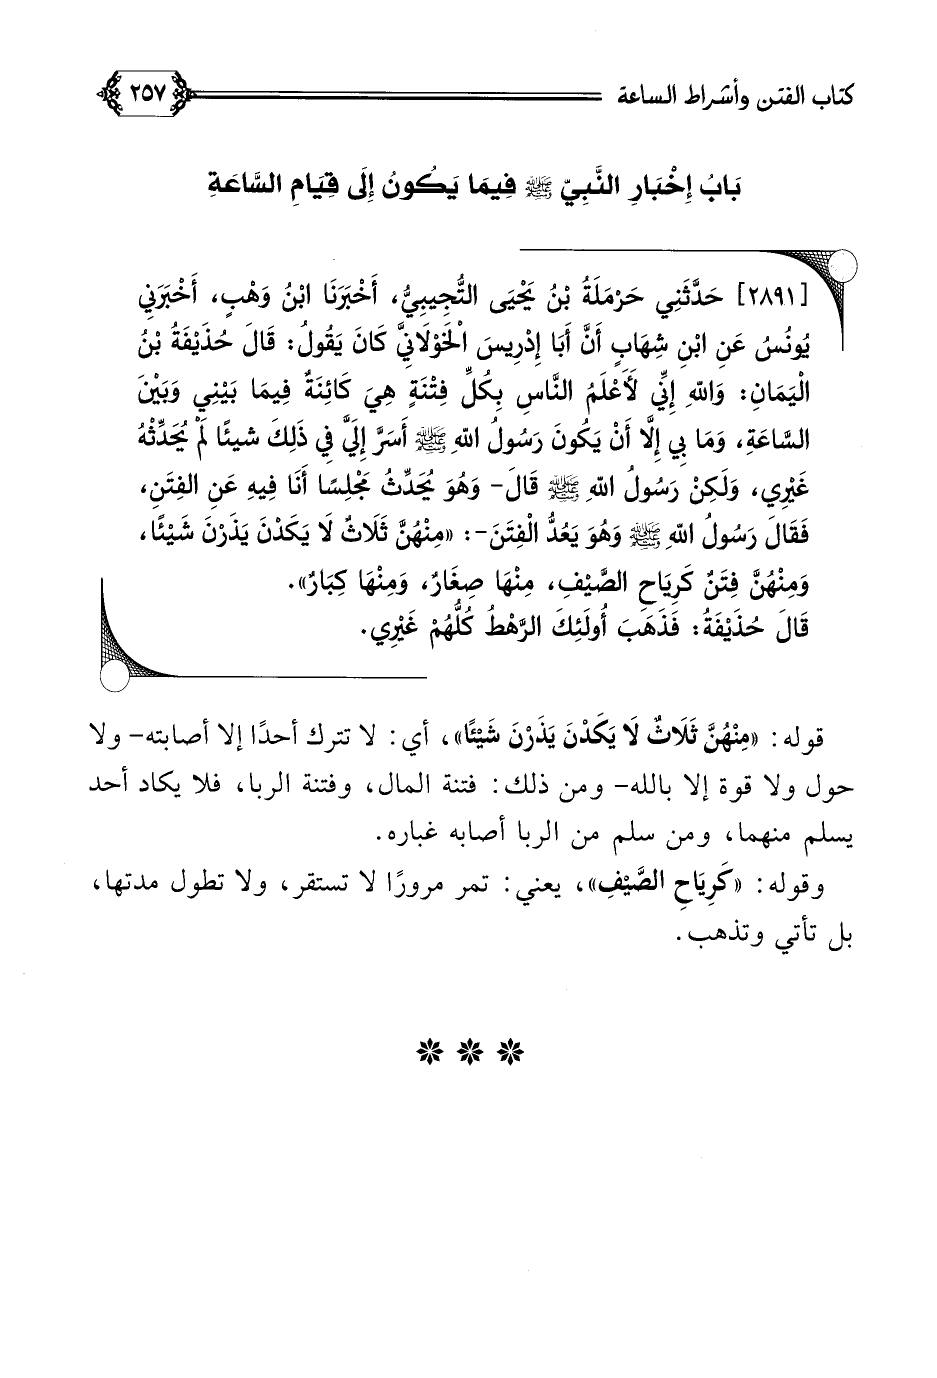 كتاب الفتن وأشراط الساعة ٢٥٧
بَابُ إِخْبَارِ النَّبِيِّ ﷺ فِيمَا يَكُونُ إِلَى قِيَامِ السَّاعَةِ
[٢٨٩١] حَدَّثَنِي حَرْمَلَةُ بْنُ يَحْيَى التُّجِيبِيُّ، أَخْبَرَنَا ابْنُ وَهْبٍ، أَخْبَرَنِي
يُونُسُ عَنِ ابْنِ شِهَابٍ أَنَّ أَبَا إِدْرِيسَ الْخَوْلَانِيَّ كَانَ يَقُولُ: قَالَ حُذَيْفَةُ بْنُ
الْيَمَانِ: وَاللهِ إِنِّي لَأَعْلَمُ النَّاسِ بِكُلِّ فِتْنَةٍ هِيَ كَائِنَةٌ فِيمَا بَيْنِي وَبَيْنَ
السَّاعَةِ، وَمَا بِي إِلَّا أَنْ يَكُونَ رَسُولُ اللهِ ﷺ أَسَرَّ إِلَيَّ فِي ذَلِكَ شيئًا لَمْ يُحَدِّثْهُ
غَيْرِي، وَلَكِنْ رَسُولُ اللهِ ﷺ قَالَ- وَهُوَ يُحَدِّثُ مَجْلِسًا أَنَا فِيهِ عَنِ الفِتَنِ،
فَقَالَ رَسُولُ اللهِ ﷺ وَهُوَ يَعُدُّ الْفِتَنَ-: «مِنْهُنَّ ثَلَاثٌ لَا يَكَدْنَ يَذَرْنَ شَيْئًا،
وَمِنْهُنَّ فِتَنٌ كَرِيَاحِ الصَّيْفِ، مِنْهَا صِغَارٌ، وَمِنْهَا كِبَارٌ».
قَالَ حُذَيْفَةُ: فَذَهَبَ أُولَئِكَ الرَّهْطُ كُلُّهُمْ غَيْرِي.
قوله: «مِنْهُنَّ ثَلَاثٌ لَا يَكَدْنَ يَذَرْنَ شَيْئًا»، أي: لا تترك أحدًا إلا أصابته- ولا
حول ولا قوة إلا بالله- ومن ذلك: فتنة المال، وفتنة الربا، فلا يكاد أحد
يسلم منهما، ومن سلم من الربا أصابه غباره.
وقوله: «كَرِيَاحِ الصَّيْفِ»، يعني: تمر مرورًا لا تستقر، ولا تطول مدتها،
بل تأتي وتذهب.